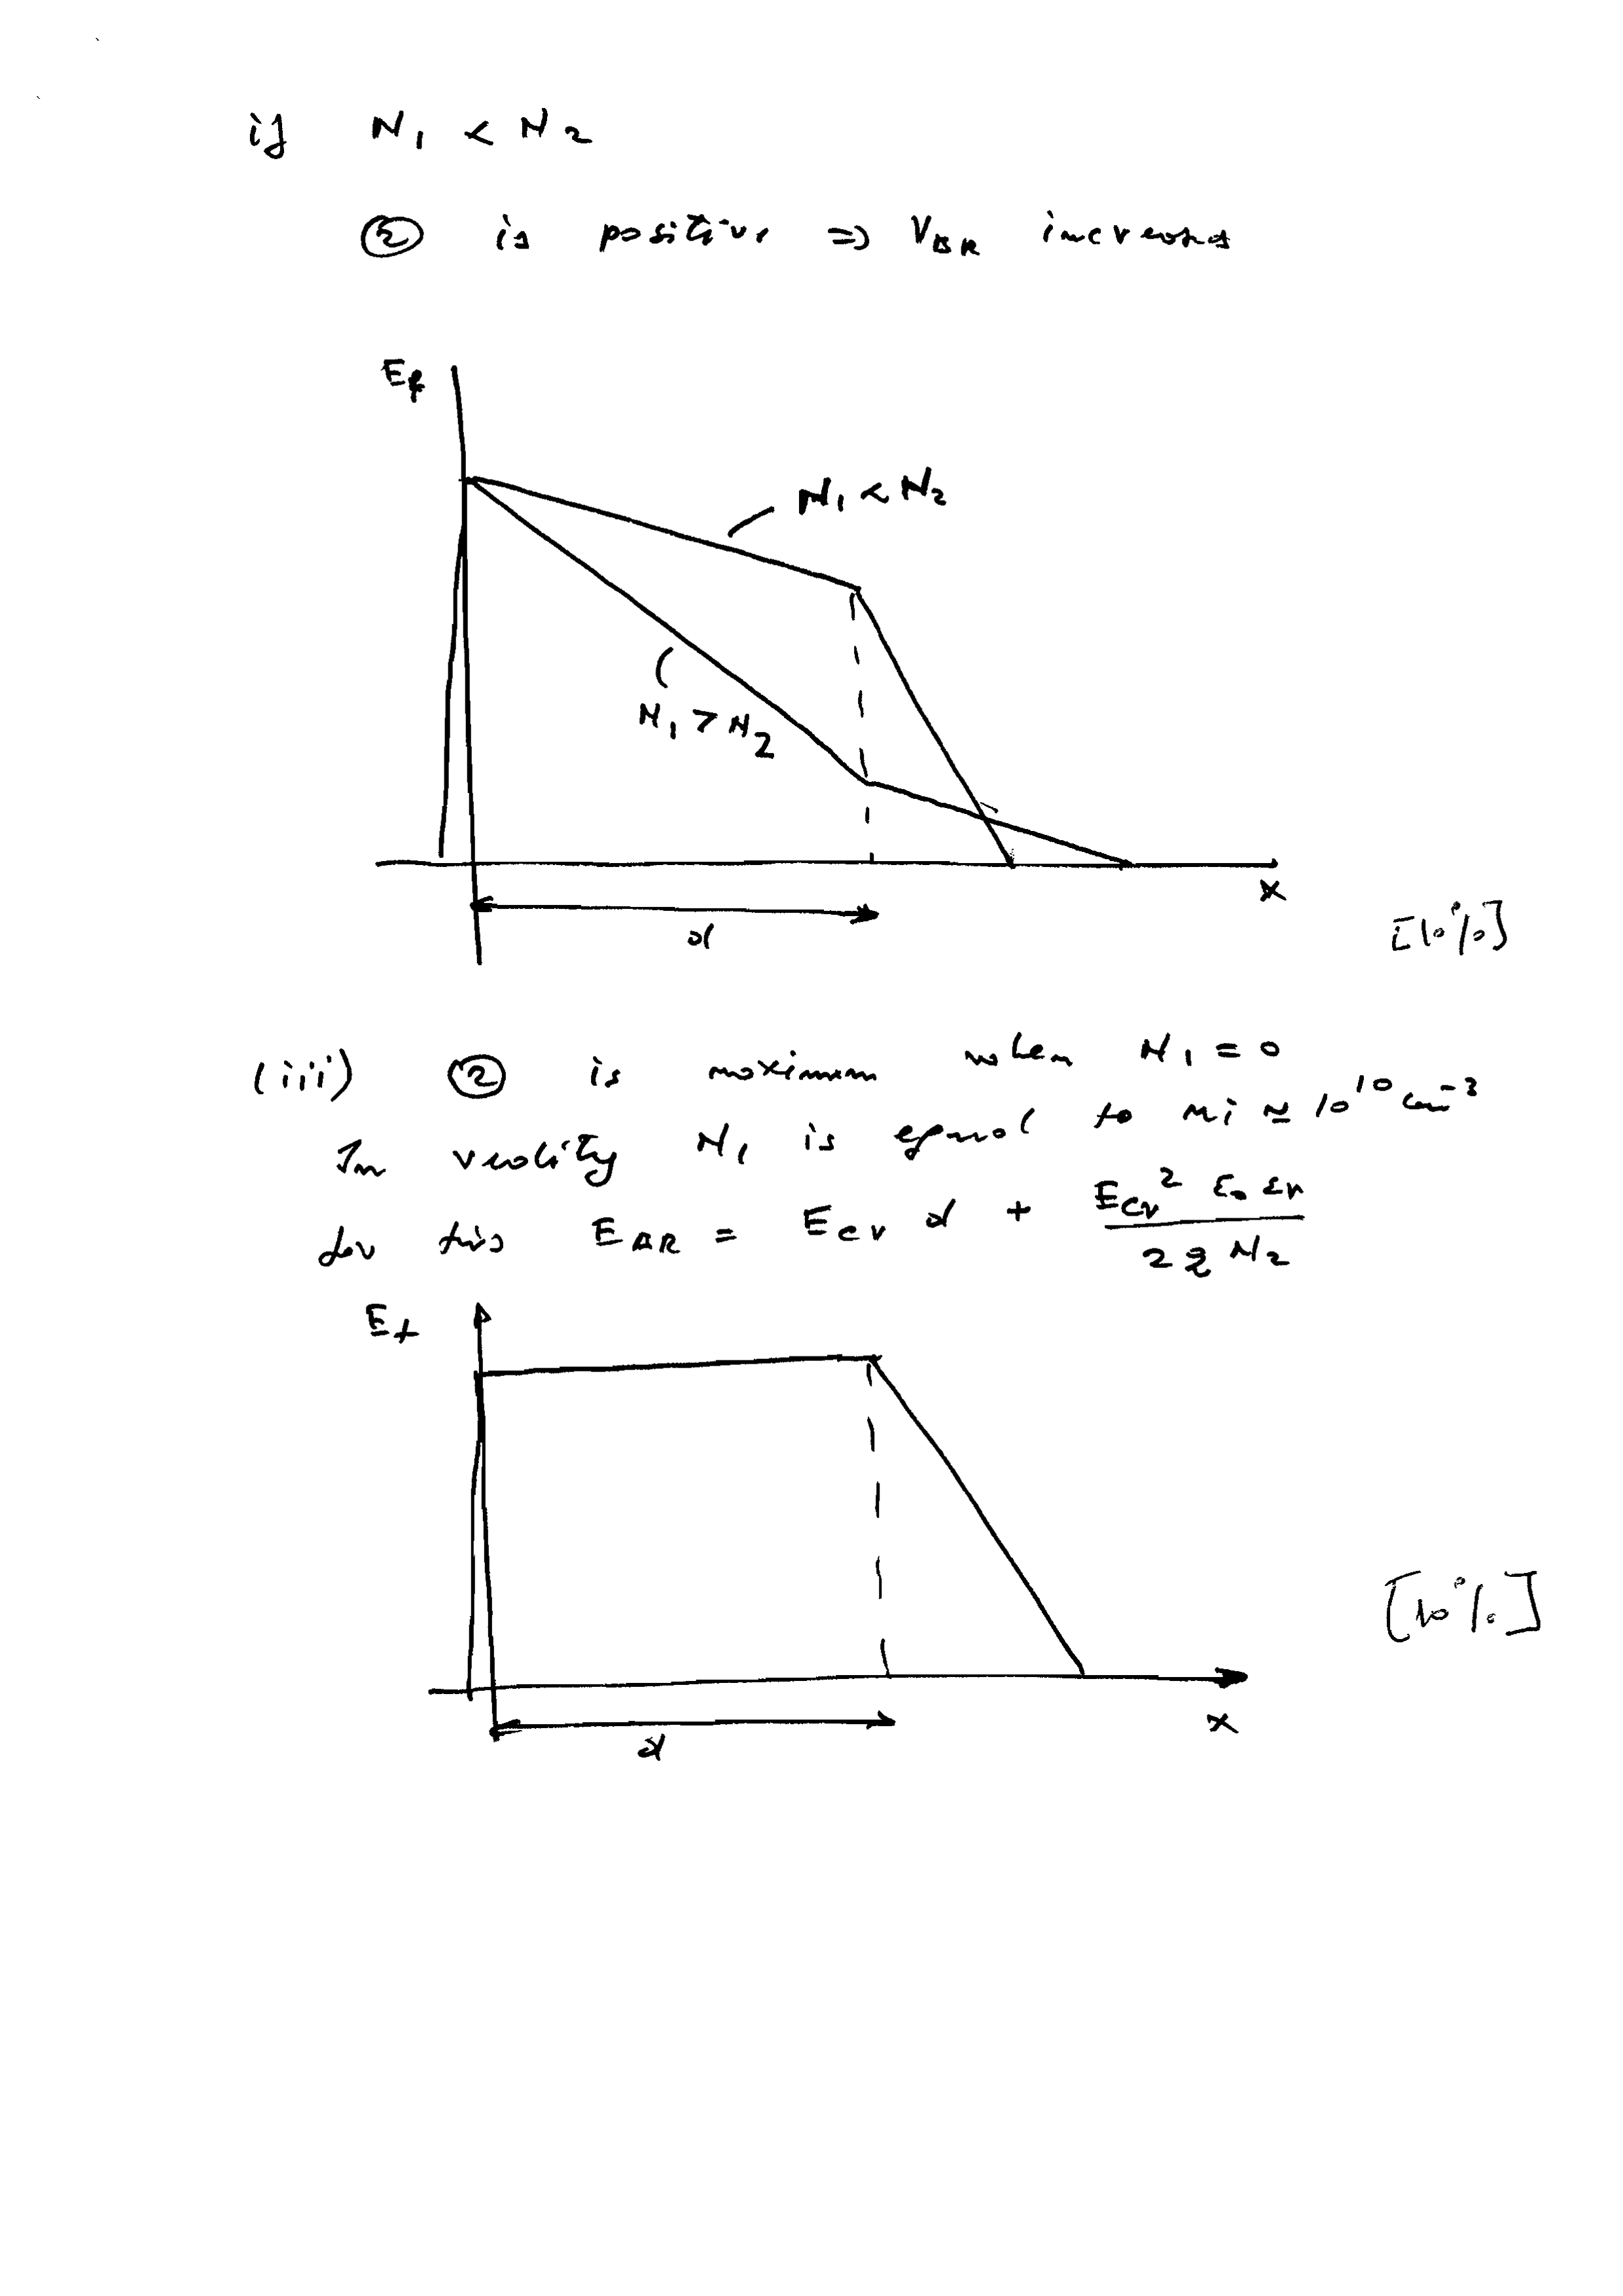 if N₁ < N₂
② is positive ⇒ V_BR increases
E_f
N₁ < N₂
N₁ > N₂
x
d
[10%]
(iii) ② is maximum when N₁ = 0
In reality N₁ is equal to ni ≃ 10¹⁰ cm⁻³
for this E_BR = E_cr d + E_cr² ε₀ εr / 2 q N₂
E_f
[10%]
x
d